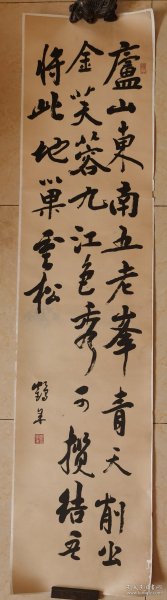 廬山東南五老峯青天削出
金芙蓉九江色秀可攬結吾
將此地巢雲松
鶴年